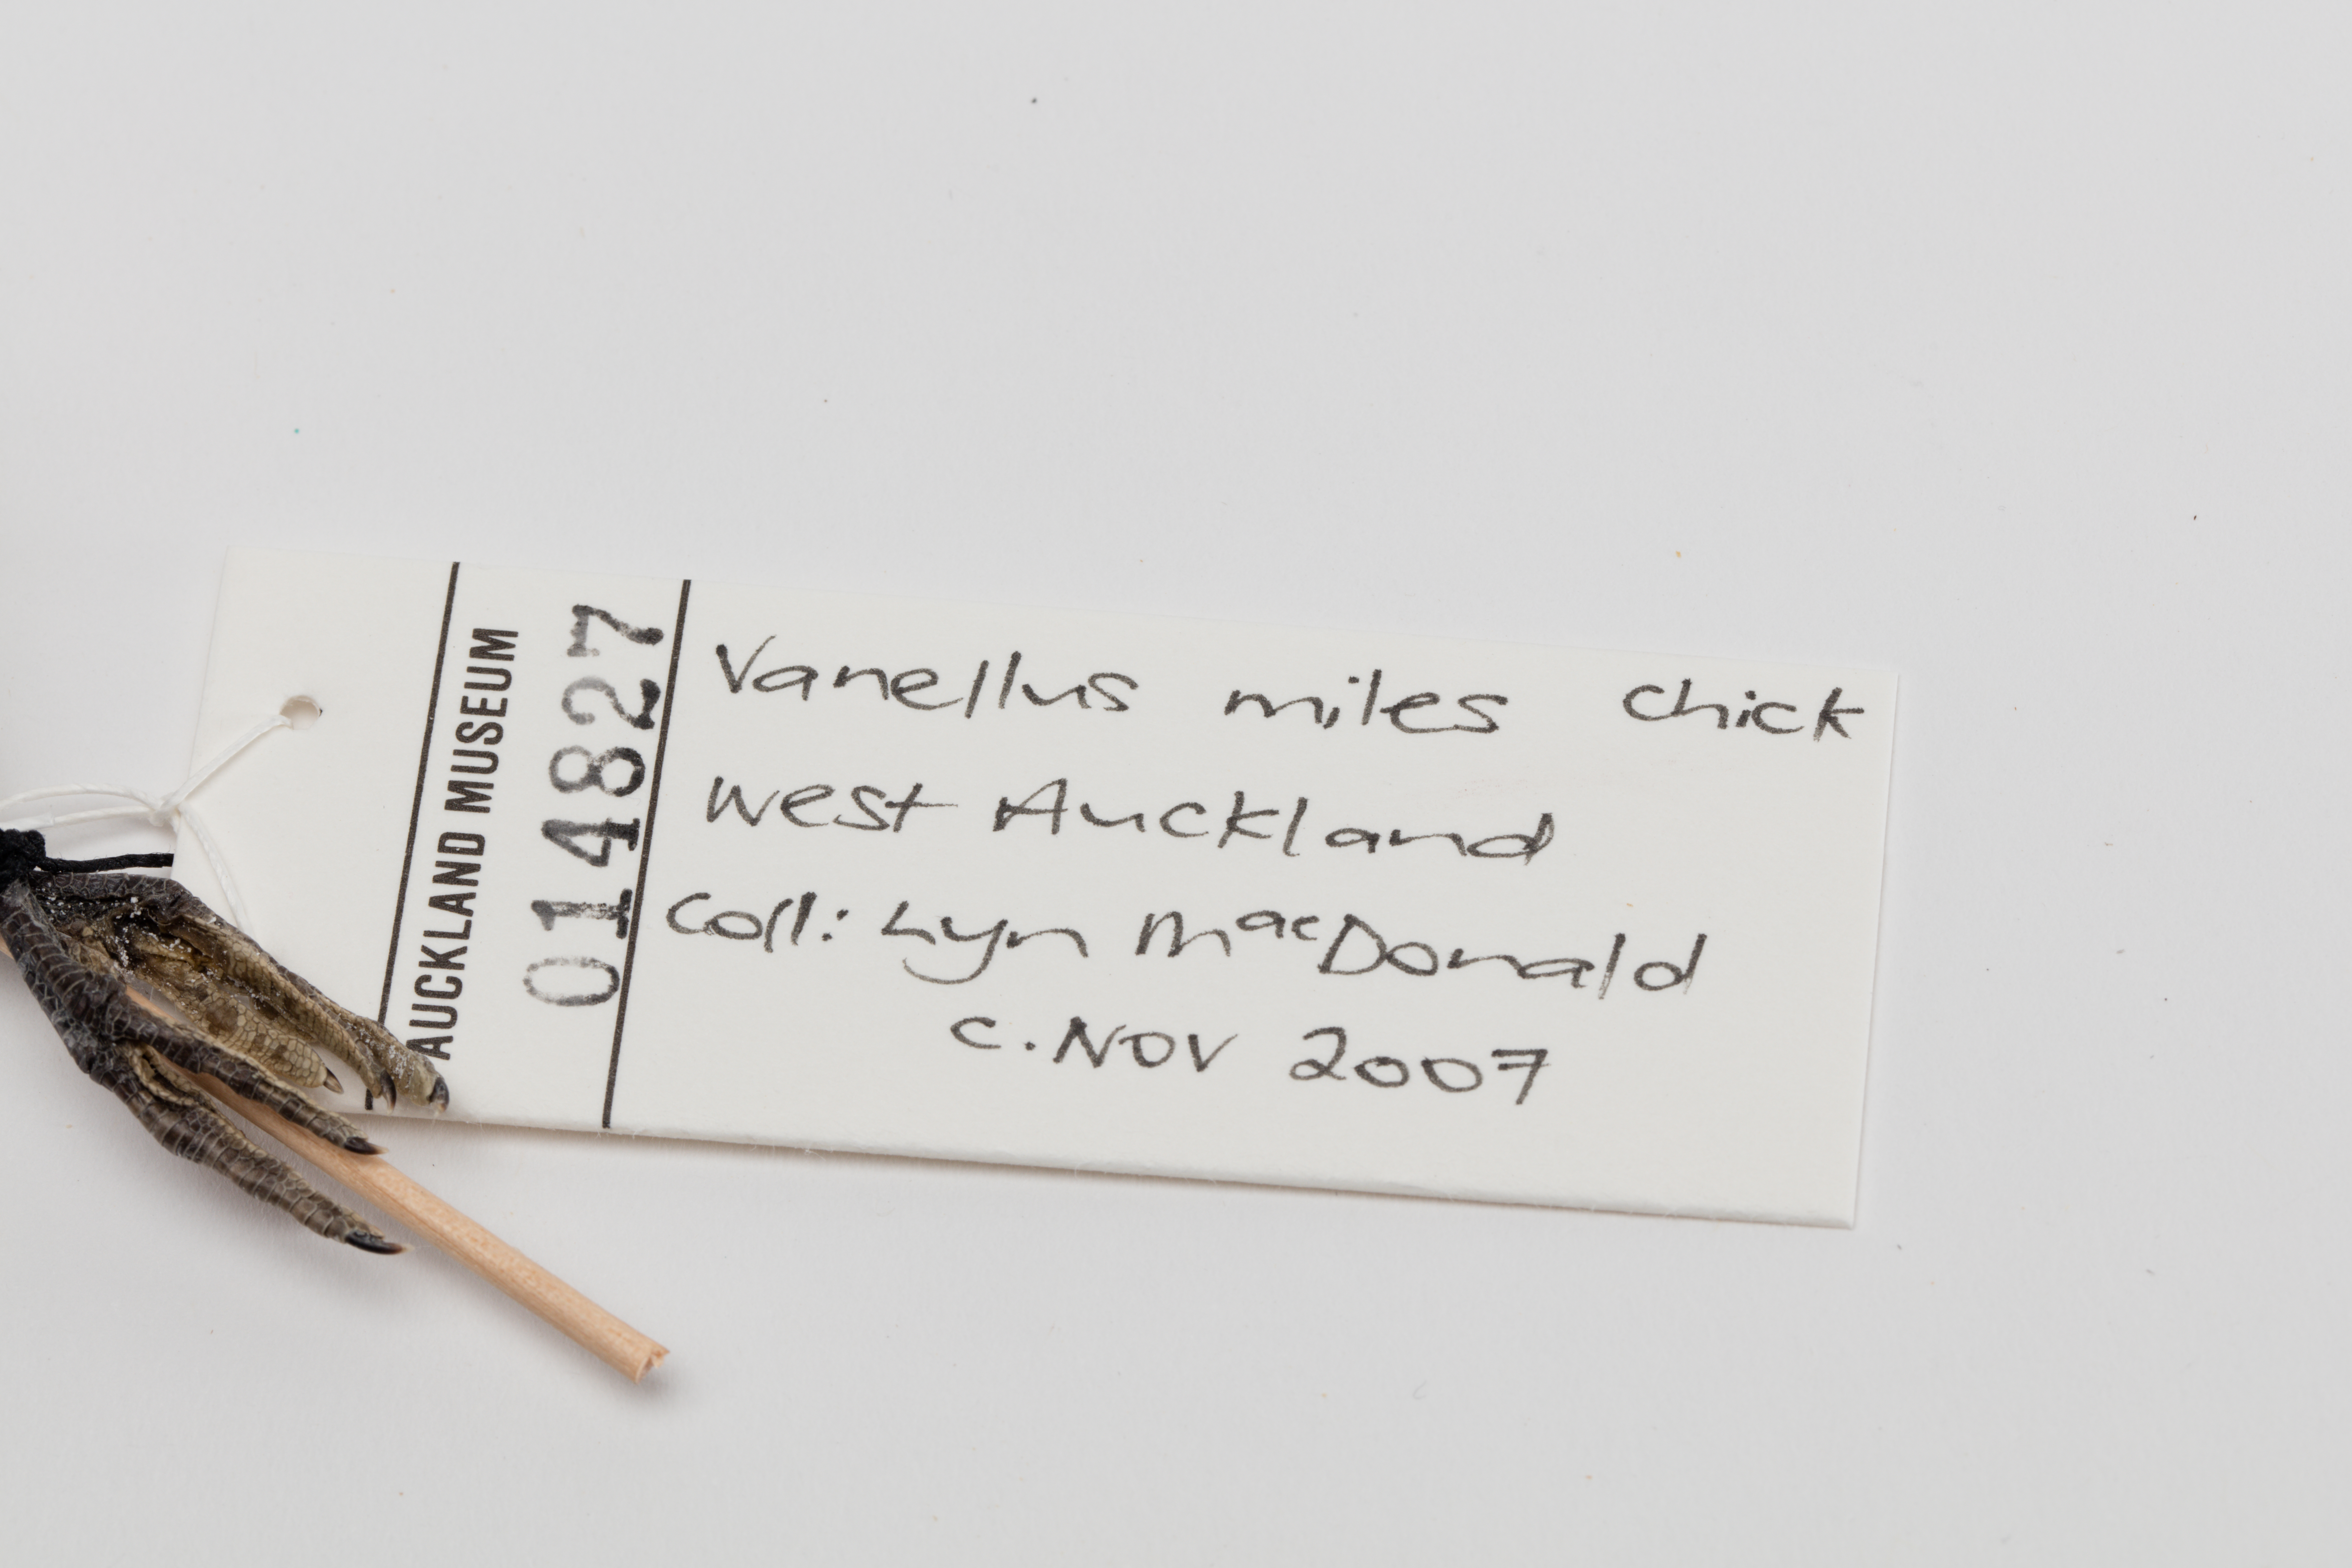 AUCKLAND MUSEUM
014827
Vanellus miles chick
West Auckland
Coll: Lyn MacDonald
c. Nov 2007